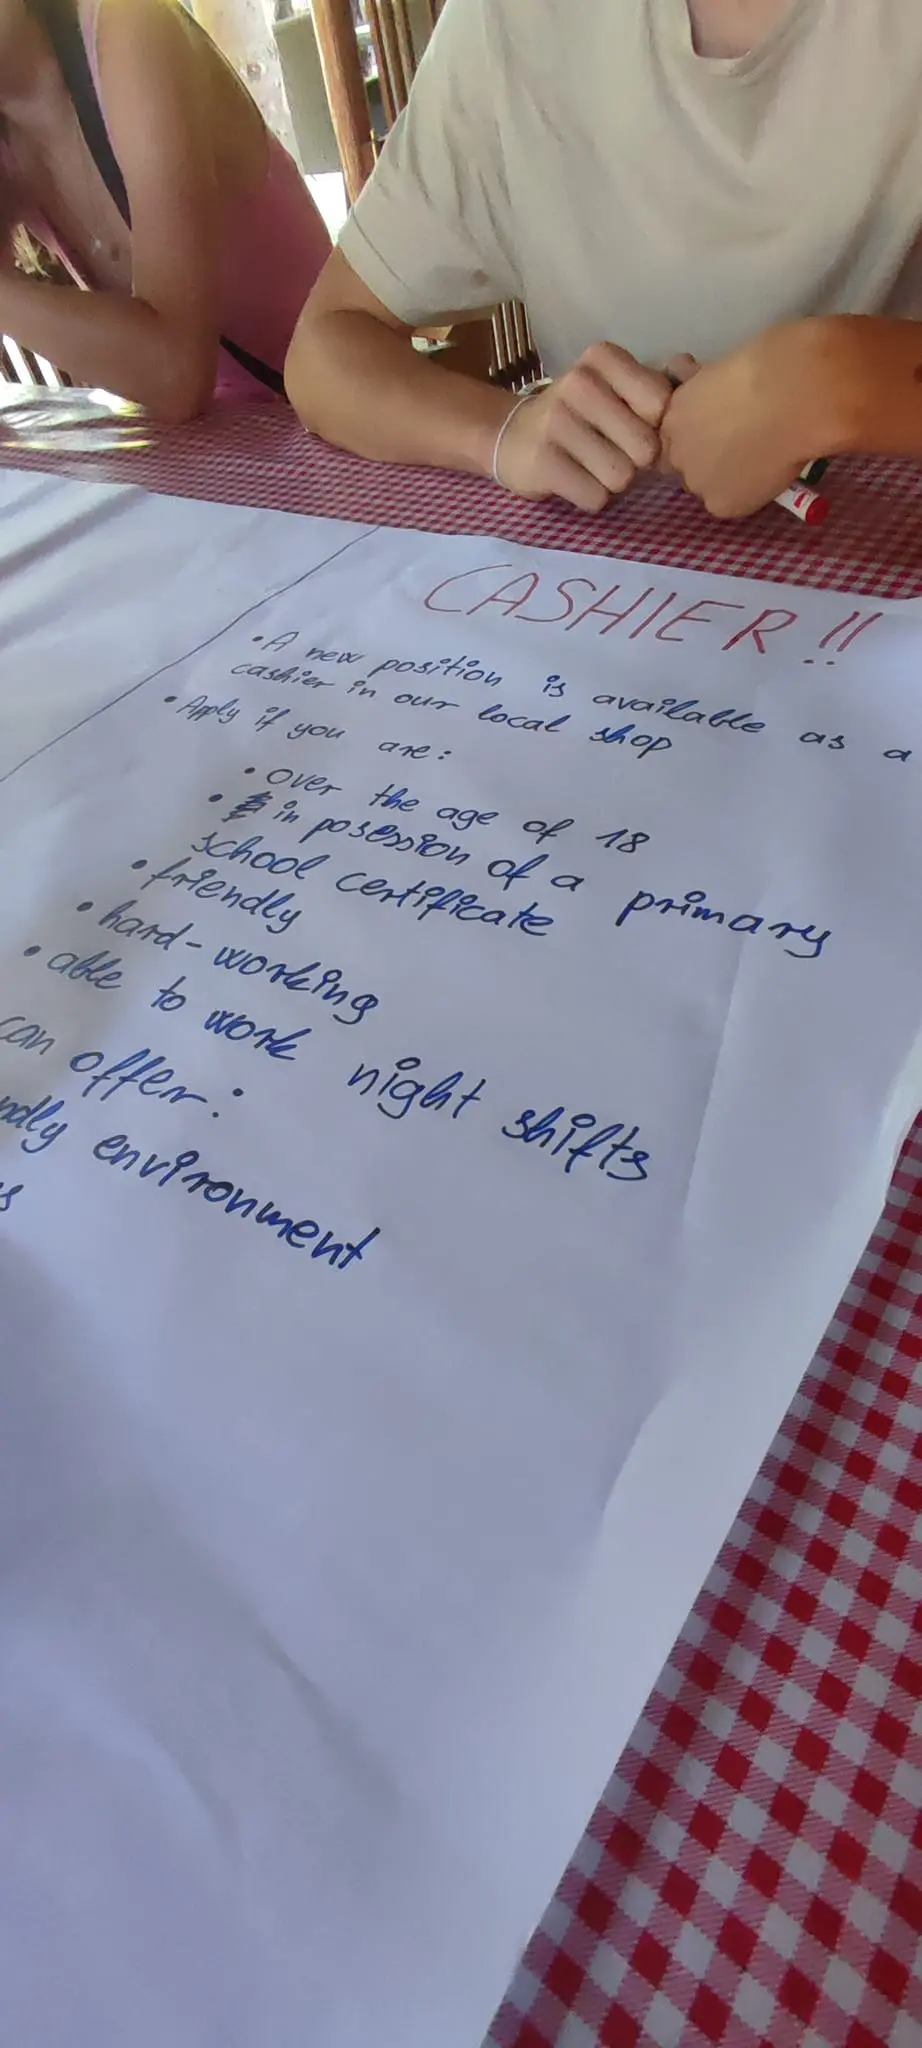 CASHIER!!
• A new position is available as a
cashier in our local shop
• Apply if you are:
• over the age of 18
• in posession of a primary
school certificate
• friendly
• hard-working
• able to work night shifts
can offer:
environment